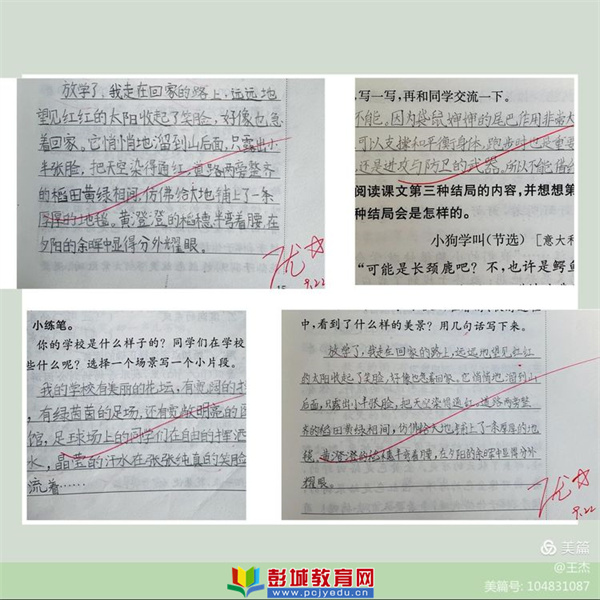 放学了,我走在回家的路上,远远地
望见红红的太阳收起了笑脸,好像也急
着回家。它悄悄地溜到山后面,只露出小
半张脸,把天空染得通红。道路两旁整齐
的稻田黄绿相间,仿佛给大地铺上了一条
厚厚的地毯。黄澄澄的稻穗半弯着腰,在
夕阳的余晖中显得分外耀眼。
优
9.22
写一写,再和同学交流一下。
不能。因为袋鼠妈妈的尾巴作用非常大
可以支撑和平衡身体,跑步时也是重要
还是进攻与防卫的武器。所以不能借
阅读课文第三种结局的内容,并想想第
种结局会是怎样的。
小狗学叫(节选) [意大利
“可能是长颈鹿吧?不,也许是鳄鱼
小练笔。
你的学校是什么样子的?同学们在学校
些什么呢?选择一个场景写一个小片段。
我的学校有美丽的花坛,有宽阔的
,有绿茵茵的足场,还有宽敞明亮的
馆,足球场上的同学们在自由的挥洒
水,晶莹的汗水在张张纯真的笑脸
流着……
中,看到了什么样的美景?用几句话写下来。
放学了,我走在回家的路上,远远地望见红红
的太阳收起了笑脸,好像也急着回家。它悄悄地溜到山
后面,只露出小半张脸,把天空染得通红。道路两旁整
齐的稻田黄绿相间,仿佛给大地铺上了一条厚厚的地
毯。黄澄澄的稻穗半弯着腰,在夕阳的余晖中显得分外
耀眼。
优
9.22
美篇
@王杰
美篇号: 104831087
彭城教育网
www.pcjyedu.cn